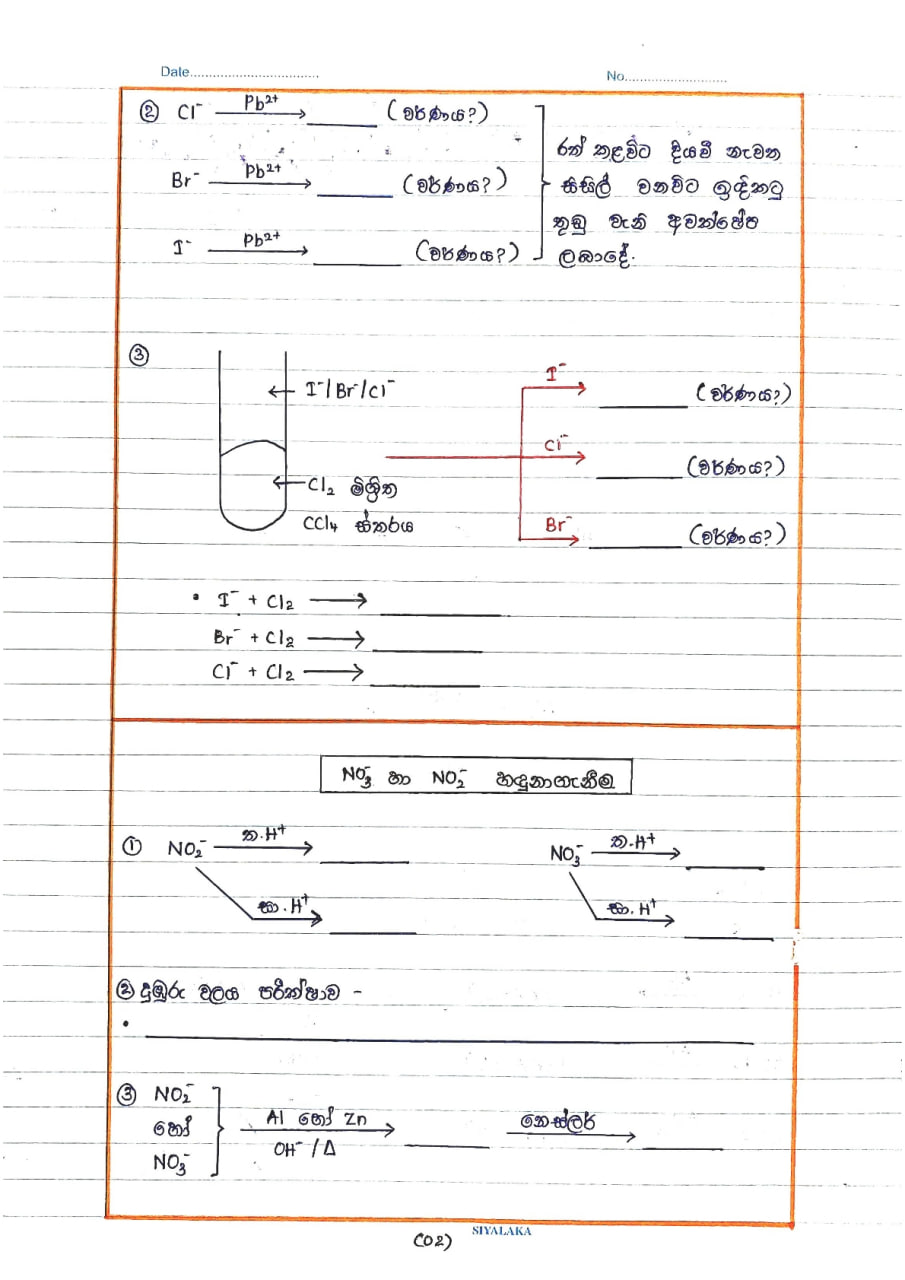 Date................................ No..........................
② Cl⁻ Pb²⁺ → ______ (වර්ණය?)
Br⁻ Pb²⁺ → ______ (වර්ණය?)
I⁻ Pb²⁺ → ______ (වර්ණය?)
රත් කළවිට දියවී නැවත
සිසිල් වනවිට ඉඳිකටු
තුඩු වැනි අවක්ෂේප
ලබාදේ.
③
I⁻/Br⁻/Cl⁻
Cl₂ මිශ්‍රිත
CCl₄ ස්තරය
I⁻ → ______ (වර්ණය?)
Cl⁻ → ______ (වර්ණය?)
Br⁻ → ______ (වර්ණය?)
• I⁻ + Cl₂ → ______
Br⁻ + Cl₂ → ______
Cl⁻ + Cl₂ → ______
NO₃⁻ හා NO₂⁻ හඳුනාගැනීම
① NO₂⁻ ත.H⁺ → ______ NO₃⁻ ත.H⁺ → ______
සා.H⁺ → ______ සා.H⁺ → ______
② දුඹුරු වලය පරීක්ෂාව -
• ______
③ NO₂⁻
හෝ
NO₃⁻
Al හෝ Zn → ______ නෙස්ලර් → ______
OH⁻ / Δ
SIYALAKA
(02)